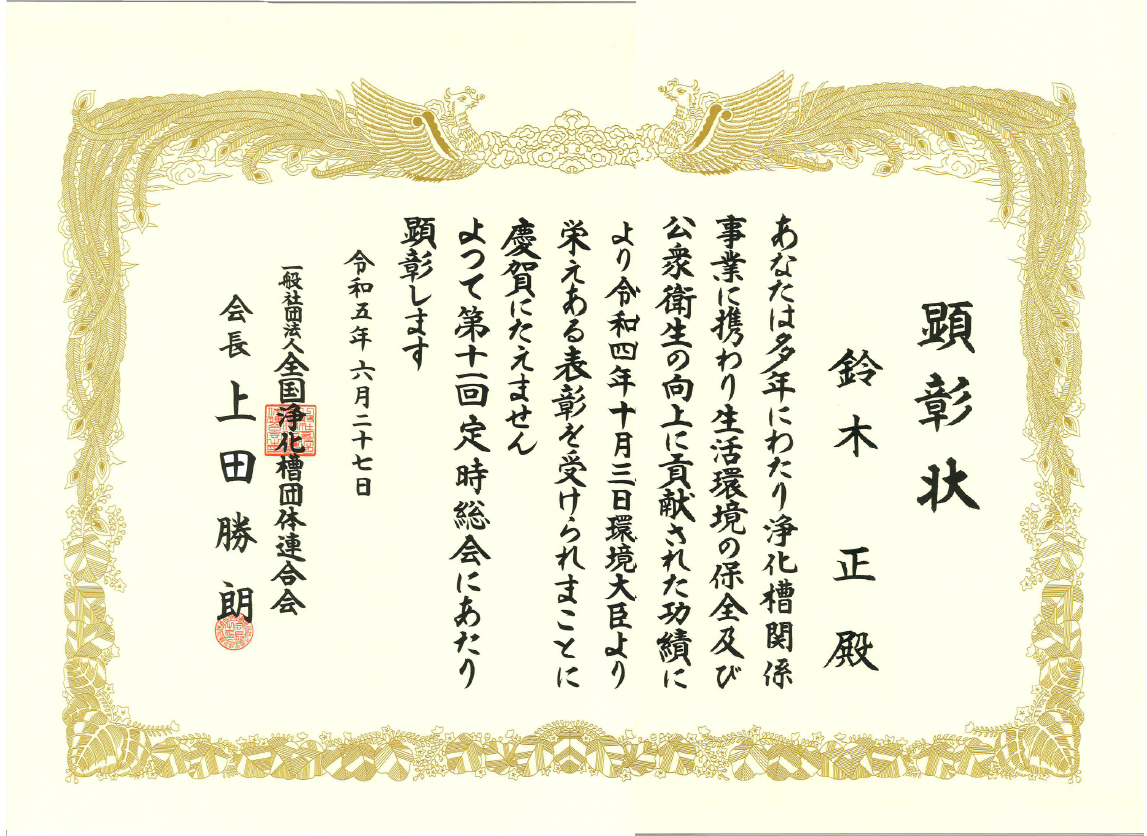 顕彰状
鈴木 正 殿
あなたは多年にわたり浄化槽関係
事業に携わり生活環境の保全及び
公衆衛生の向上に貢献された功績に
より令和四年十月三日環境大臣より
栄えある表彰を受けられまことに
慶賀にたえません
よつて第十一回定時総会にあたり
顕彰します
令和五年六月二十七日
一般社団法人全国浄化槽団体連合会
会長 上田勝朗